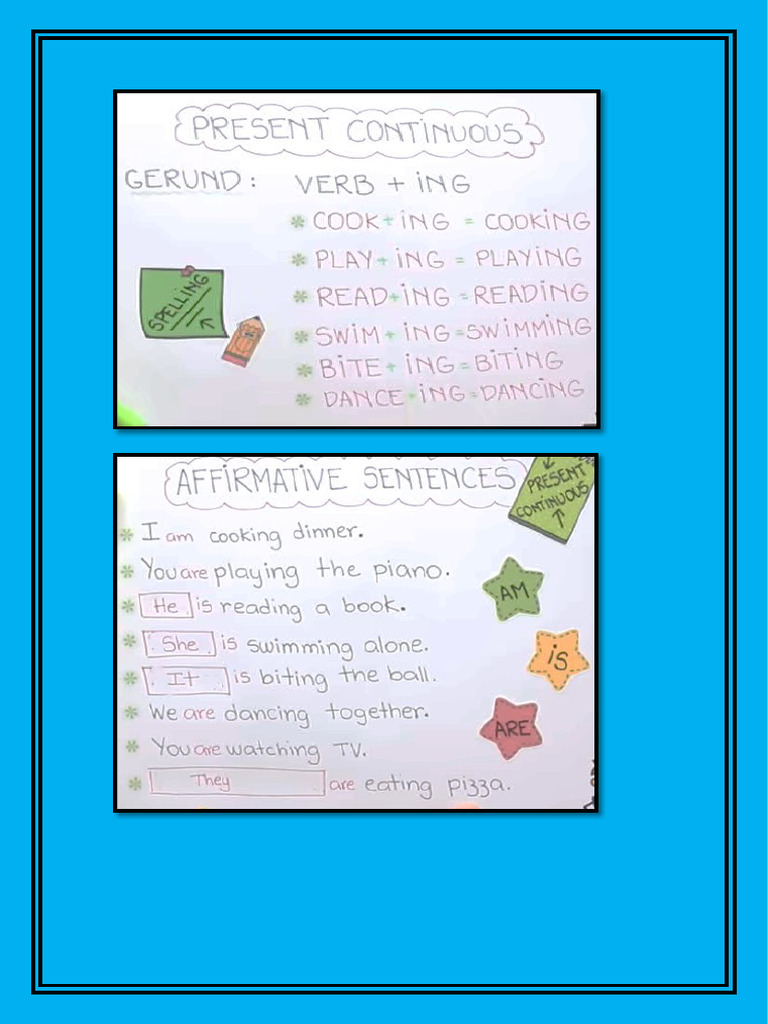 PRESENT CONTINUOUS
GERUND: VERB + ING
* COOK + ING = COOKING
* PLAY + ING = PLAYING
* READ + ING = READING
* SWIM + ING = SWIMMING
* BITE + ING = BITING
* DANCE + ING = DANCING
SPELLING
AFFIRMATIVE SENTENCES
PRESENT
CONTINUOUS
* I am cooking dinner.
* You are playing the piano.
* He is reading a book.
* She is swimming alone.
* It is biting the ball.
* We are dancing together.
* You are watching TV.
* They are eating pizza.
AM
IS
ARE